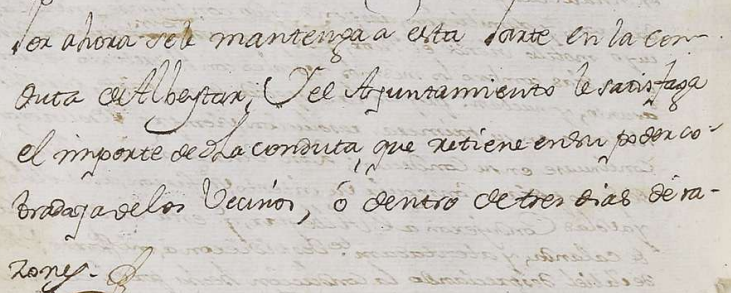 Por ahora se le mantenga a esta Parte en la Con-
duta de Albeytar, Y el Ayuntamiento le satisfaga
el importe de dha conduta, que retiene en su poder co-
brada ya de los Vecinos, ó dentro de tres dias dé ra-
zones.